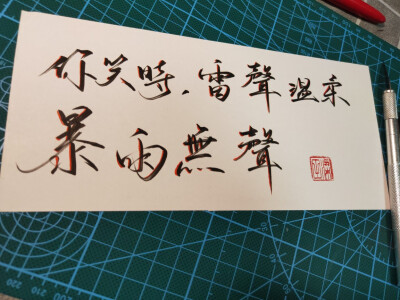 你笑時，雷聲溫柔
暴雨無聲